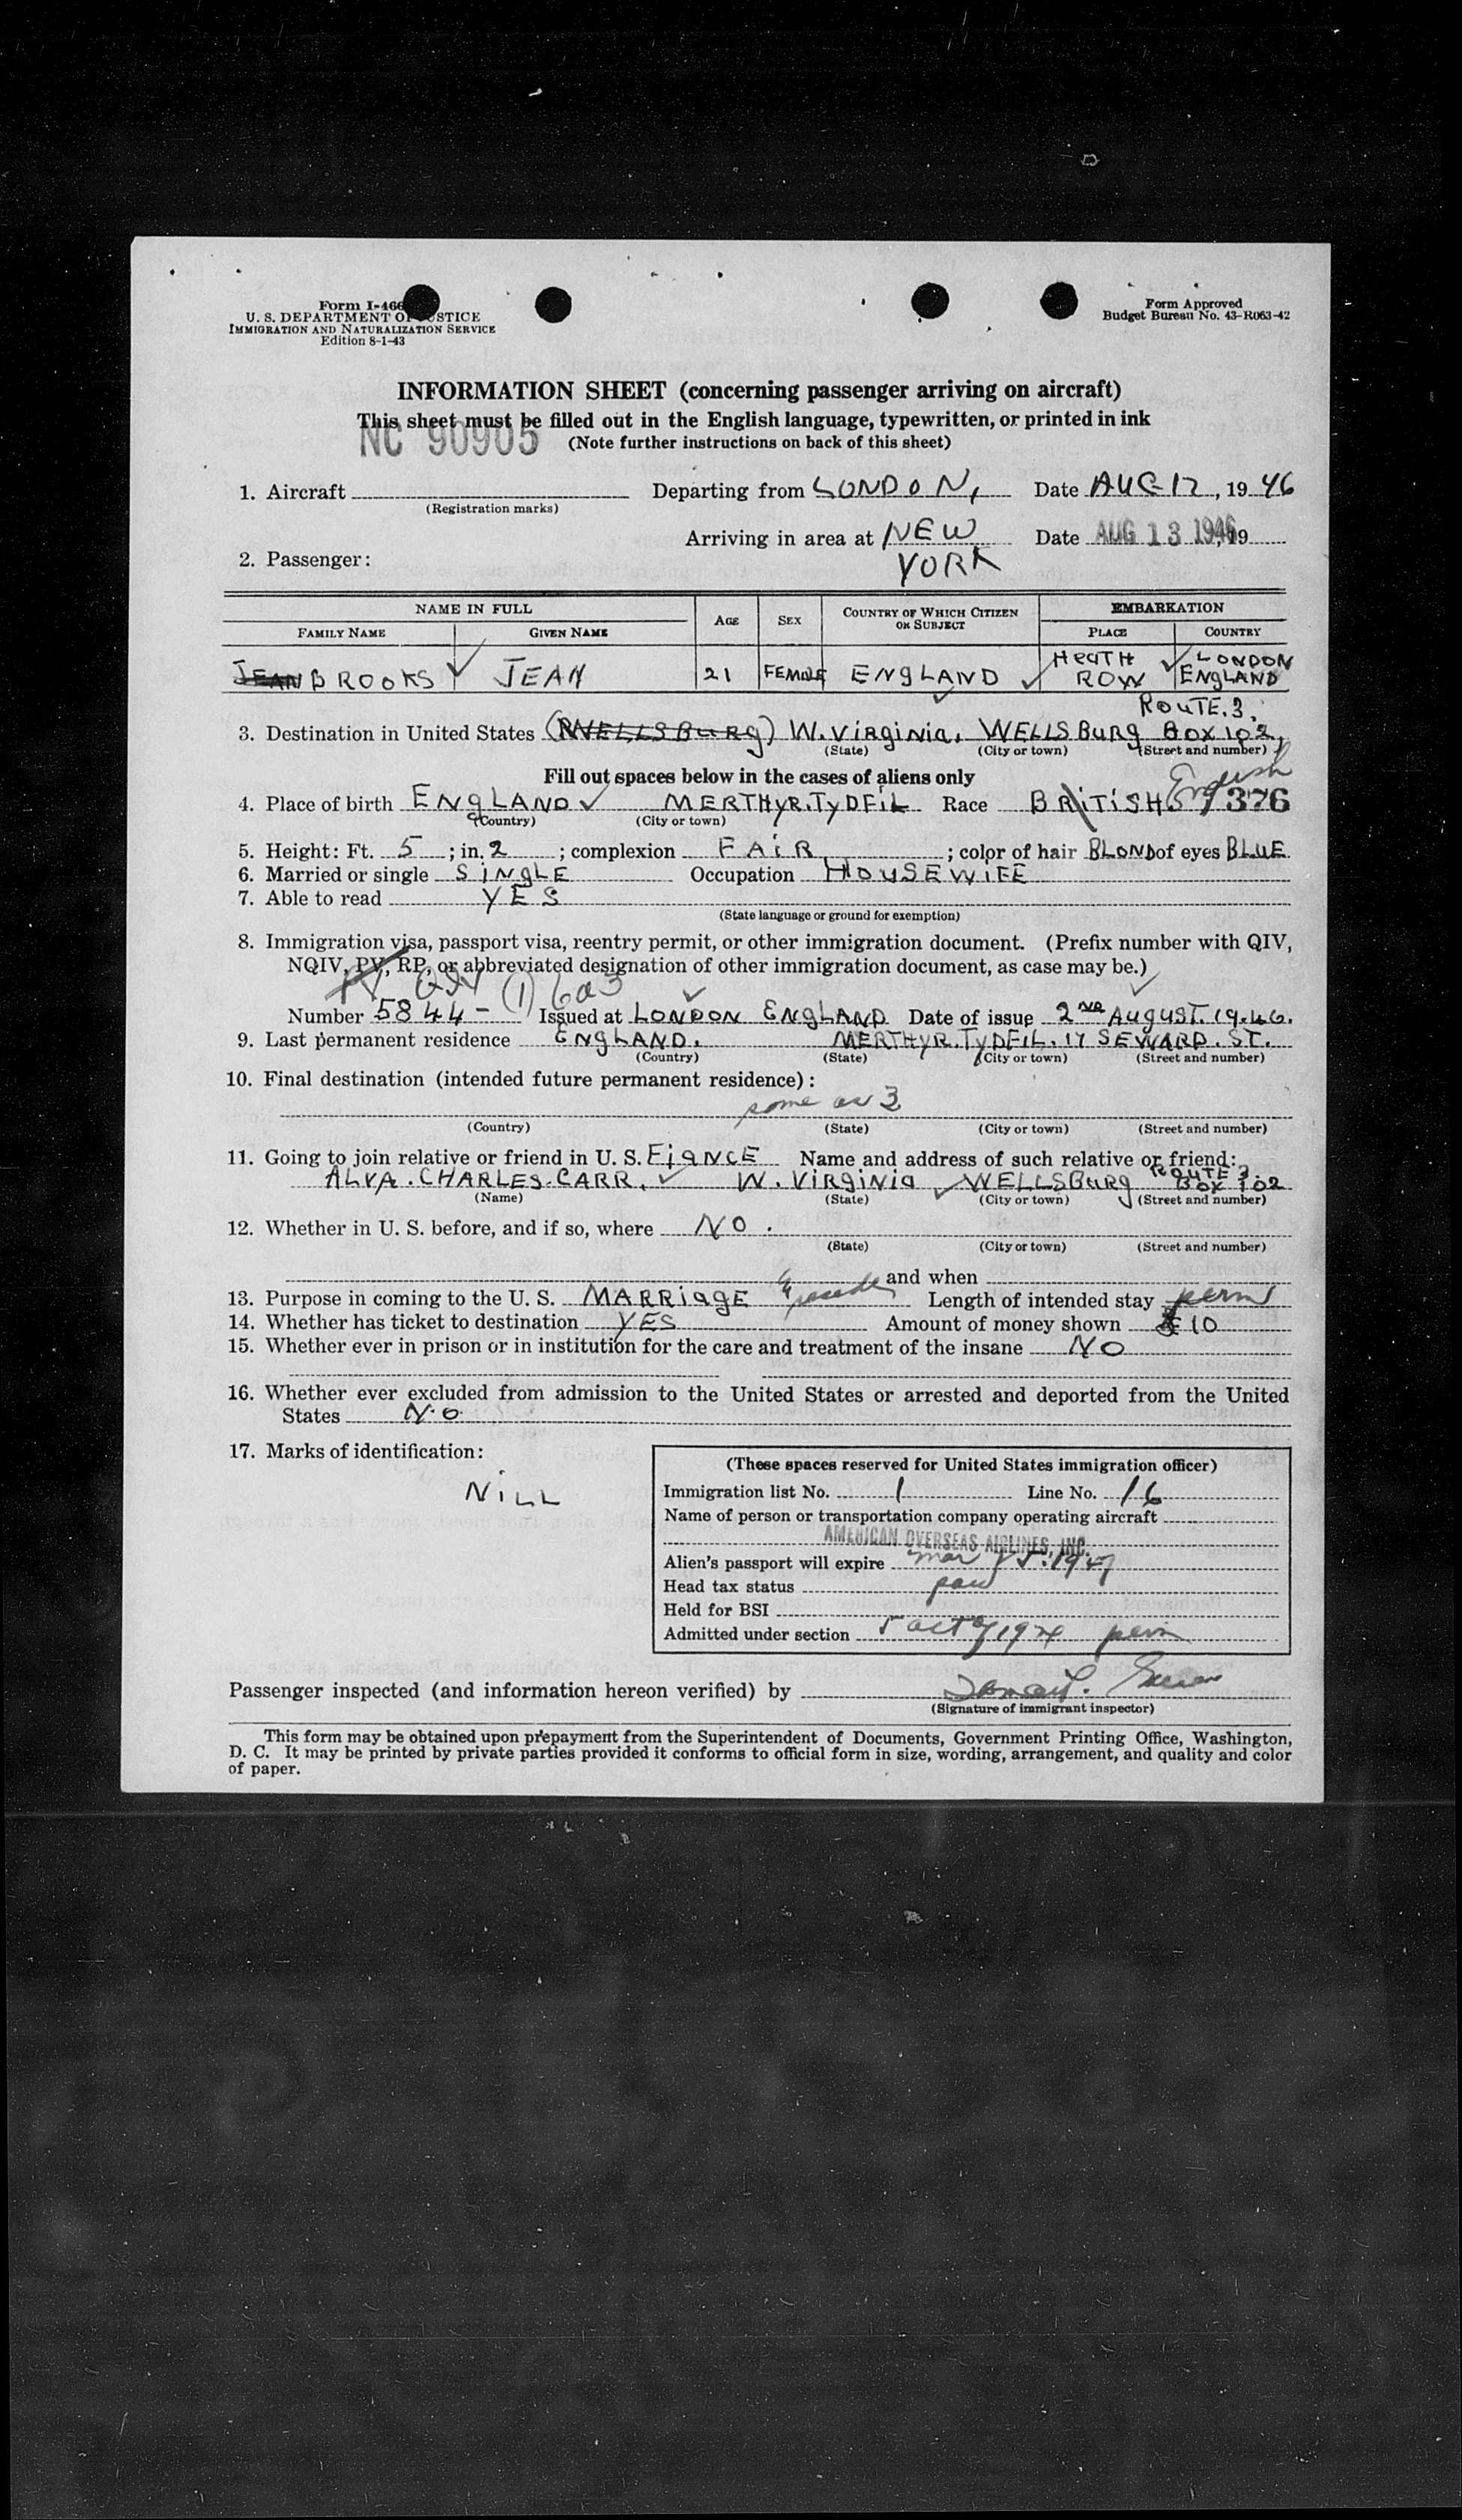 Form I-466
U. S. DEPARTMENT OF JUSTICE
IMMIGRATION AND NATURALIZATION SERVICE
Edition 8-1-43
Form Approved
Budget Bureau No. 43-R063-42
INFORMATION SHEET (concerning passenger arriving on aircraft)
This sheet must be filled out in the English language, typewritten, or printed in ink
NC 90905 (Note further instructions on back of this sheet)
1. Aircraft Departing from LONDON, Date AUG 12, 19 46
(Registration marks)
Arriving in area at NEW YORK Date AUG 13 1946, 19
2. Passenger:
NAME IN FULL AGE SEX COUNTRY OF WHICH CITIZEN OR SUBJECT EMBARKATION
FAMILY NAME GIVEN NAME PLACE COUNTRY
JEAN BROOKS JEAN 21 FEMALE ENGLAND HEATH ROW LONDON ENGLAND
ROUTE.3.
3. Destination in United States (WELLSBURG) W. Virginia, WELLSBURG BOX 102,
(State) (City or town) (Street and number)
Fill out spaces below in the cases of aliens only
4. Place of birth ENGLAND MERTHYR.TYDFIL Race BRITISH English 376
(Country) (City or town)
5. Height: Ft. 5 ; in. 2 ; complexion FAIR ; color of hair BLOND of eyes BLUE
6. Married or single SINGLE Occupation HOUSEWIFE
7. Able to read YES
(State language or ground for exemption)
8. Immigration visa, passport visa, reentry permit, or other immigration document. (Prefix number with QIV,
NQIV, PV, RP, or abbreviated designation of other immigration document, as case may be.)
PV QIV (1) 6a3
Number 5844- Issued at LONDON ENGLAND Date of issue 2ND AUGUST. 1946.
9. Last permanent residence ENGLAND. MERTHYR.TYDFIL. 17 SEWARD. ST.
(Country) (State) (City or town) (Street and number)
10. Final destination (intended future permanent residence):
same as 3
(Country) (State) (City or town) (Street and number)
11. Going to join relative or friend in U. S. FIANCE Name and address of such relative or friend:
ALVA. CHARLES. CARR. W. VIRGINIA WELLSBURG ROUTE 3. BOX 102
(Name) (State) (City or town) (Street and number)
12. Whether in U. S. before, and if so, where NO.
(State) (City or town) (Street and number)
and when
13. Purpose in coming to the U. S. MARRIAGE Length of intended stay perm
14. Whether has ticket to destination YES Amount of money shown £10
15. Whether ever in prison or in institution for the care and treatment of the insane NO
16. Whether ever excluded from admission to the United States or arrested and deported from the United
States NO
17. Marks of identification:
NILL
(These spaces reserved for United States immigration officer)
Immigration list No. 1 Line No. 16
Name of person or transportation company operating aircraft
AMERICAN OVERSEAS AIRLINES, INC.
Alien's passport will expire mar 1947
Head tax status
Held for BSI
Admitted under section 5 act of 1924 perm
Passenger inspected (and information hereon verified) by
(Signature of immigrant inspector)
This form may be obtained upon prepayment from the Superintendent of Documents, Government Printing Office, Washington,
D. C. It may be printed by private parties provided it conforms to official form in size, wording, arrangement, and quality and color
of paper.